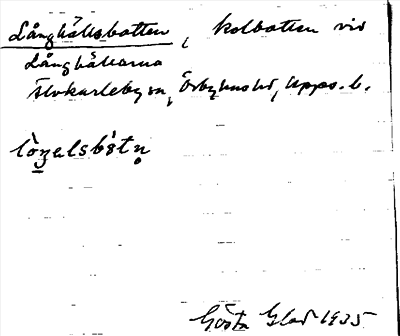 Långhällsbotten, kolbotten vid
Långhällarna
Älvkarleby sn, Örbyhus hd, Upps. l.
Gösta Glad 1935